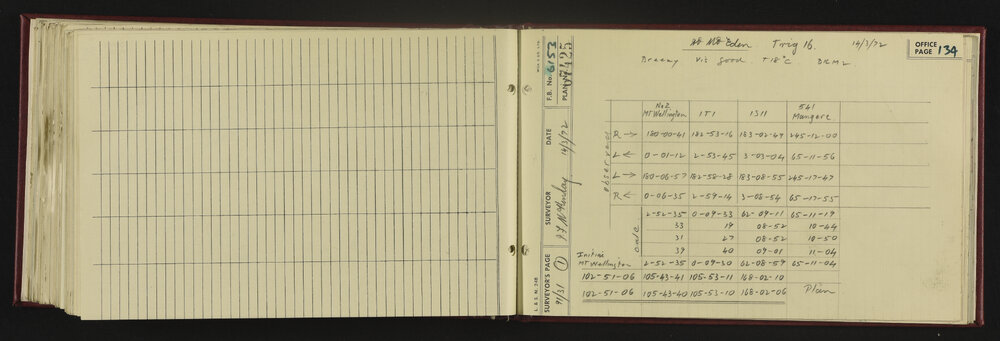 @ Mt Eden Trig 16. 14/3/72
OFFICE PAGE 134
Breezy Vis good T 18°C DKM2
No2 Mt Wellington IT1 1311 541 Mangere
observed
R → 180-00-41 182-53-16 183-02-49 245-12-00
L ← 0-01-12 2-53-45 3-03-04 65-11-56
L → 180-06-57 182-58-28 183-08-55 245-17-47
R ← 0-06-35 2-59-14 3-08-54 65-17-55
angle
2-52-35 0-09-33 62-09-11 65-11-19
33 19 08-52 10-44
31 27 08-52 10-50
39 40 09-01 11-04
Initial
Mt Wellington 2-52-35 0-09-30 62-08-59 65-11-04
102-51-06 105-43-41 105-53-11 168-02-10
102-51-06 105-43-40 105-53-10 168-02-06 Plan
L. & S. N. 248
SURVEYOR'S PAGE 91/31 1
SURVEYOR
DATE 14/3/72
F.B. No. 6153
PLAN No. 67425